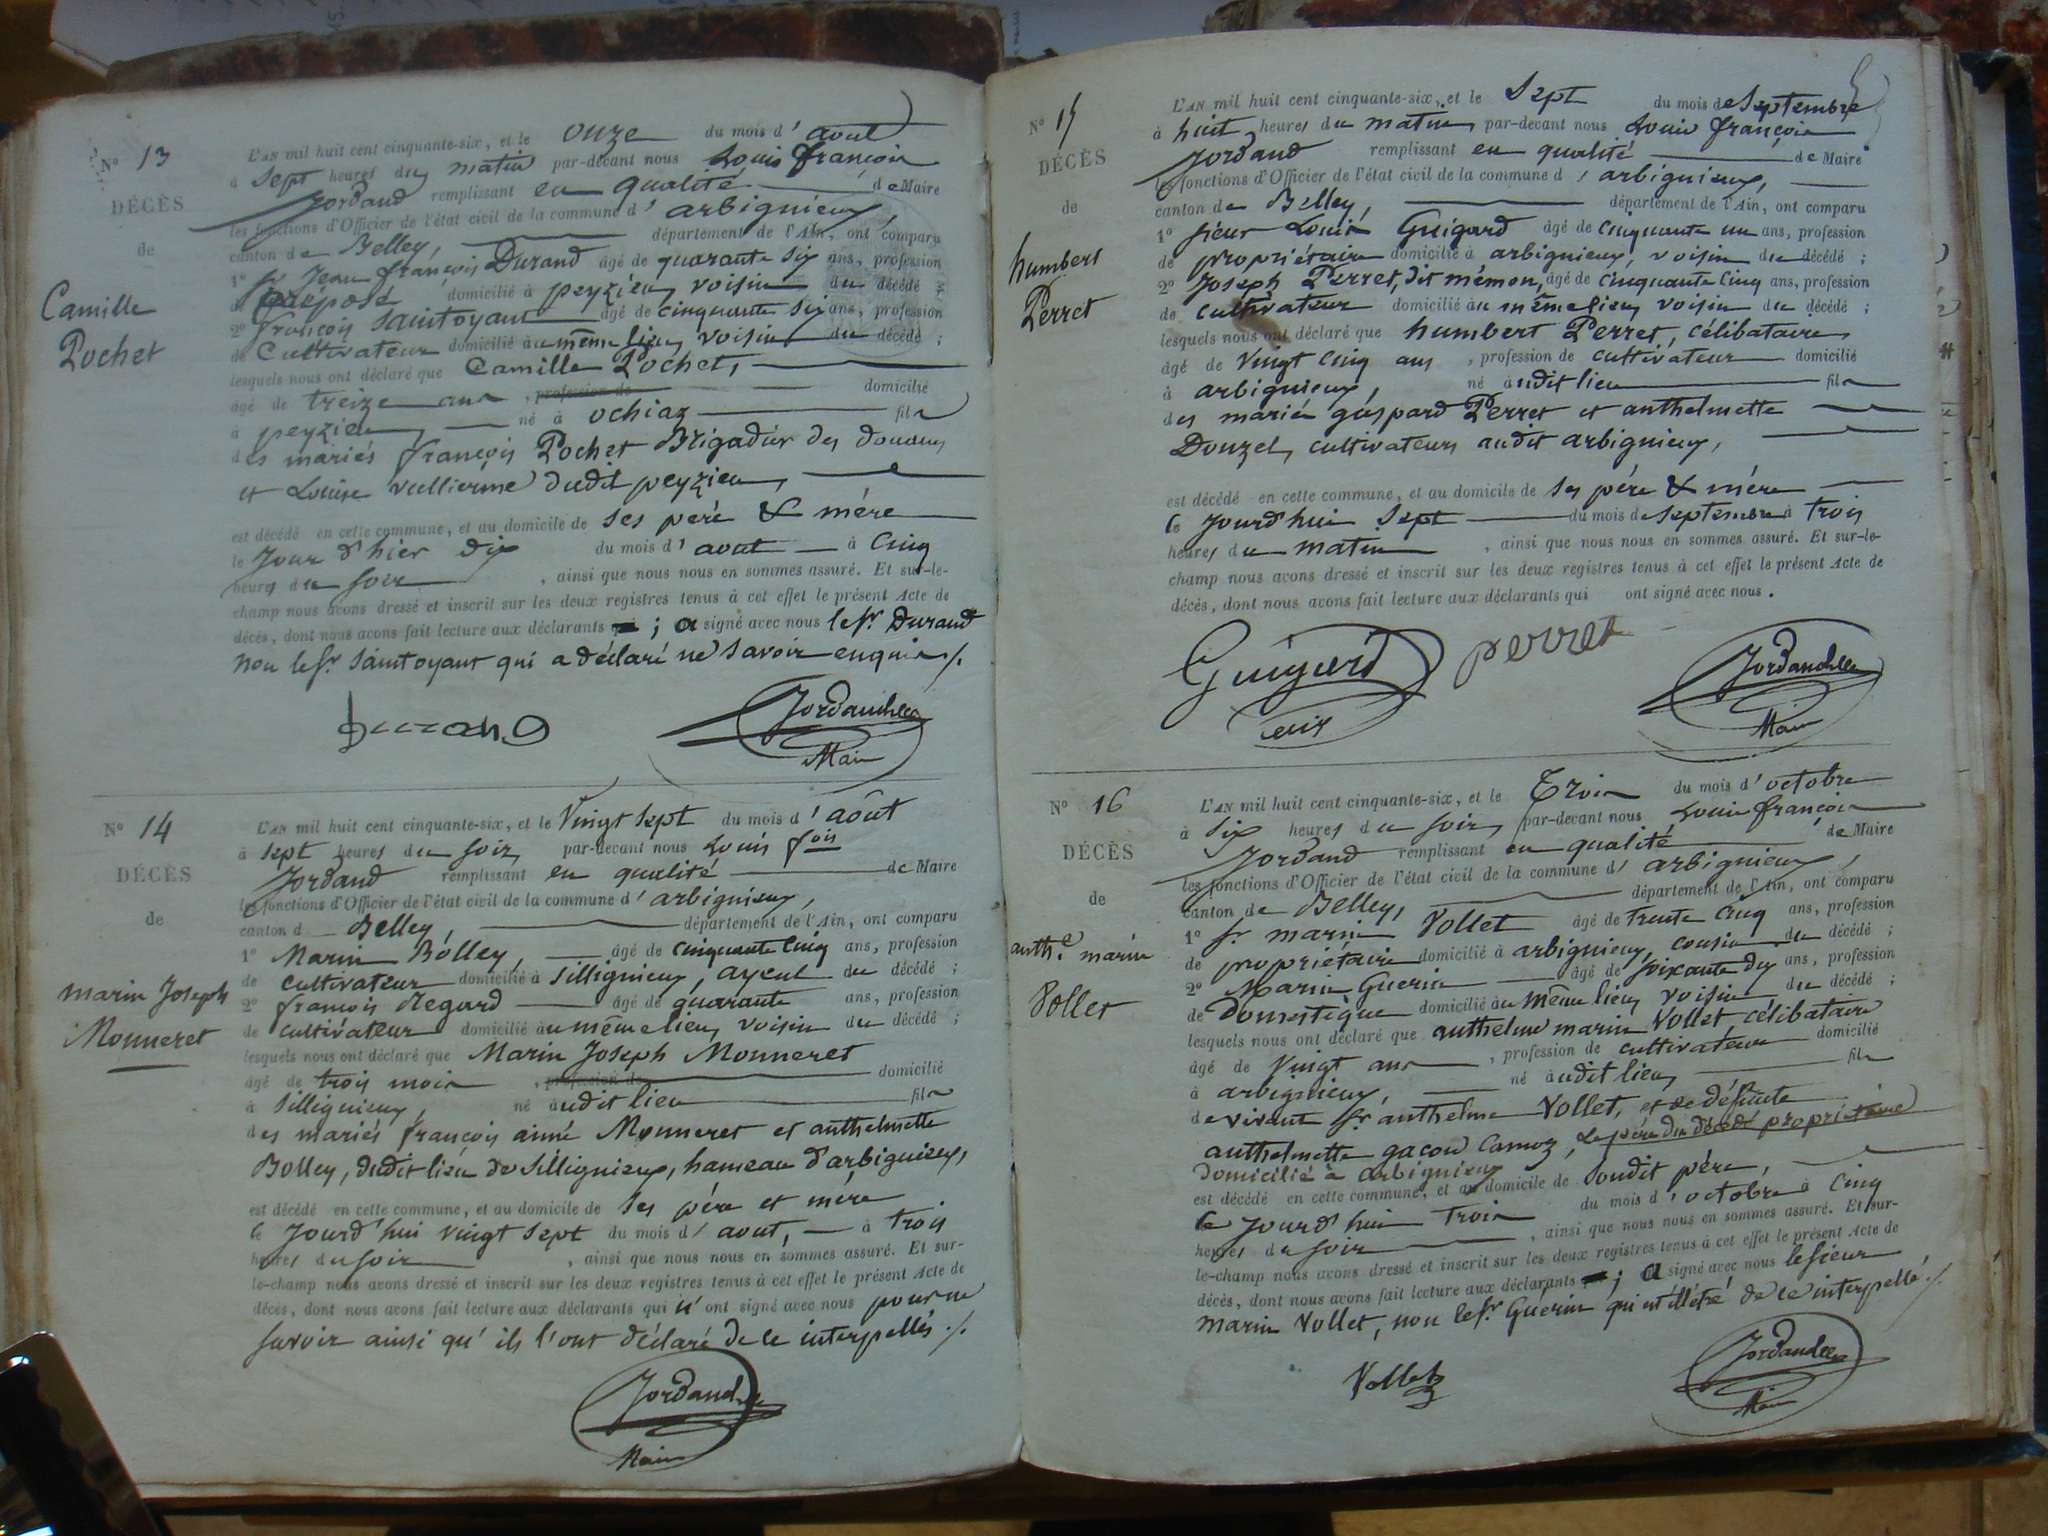 N° 13
DÉCÈS
de
Camille
Pochet
L'AN mil huit cent cinquante-six, et le onze du mois d'aout
à sept heures du matin par-devant nous Louis françois
Jordand remplissant en qualité de Maire
les fonctions d'Officier de l'état civil de la commune d'arbignieux,
canton de Belley, département de l'Ain, ont comparu
1° Sr Jean françois Durand âgé de quarante six ans, profession
de préposé domicilié à peyzieu, voisin du décédé
2° françois Saintoyant âgé de cinquante six ans, profession
de Cultivateur domicilié au même lieu, voisin du décédé ;
lesquels nous ont déclaré que Camille Pochet,
âgé de treize ans, profession de domicilié
à peyzieu, né à ochiaz fils
des mariés françois Pochet Brigadier des douanes
et Louise vullierme dudit peyzieu,
est décédé en cette commune, et au domicile de ses père & mère
le Jour d'hier dix du mois d'aout à Cinq
heures du soir, ainsi que nous nous en sommes assuré. Et sur-le-
champ nous avons dressé et inscrit sur les deux registres tenus à cet effet le présent Acte de
décès, dont nous avons fait lecture aux déclarants ; a signé avec nous le sr Durand
non le sr Saintoyant qui a déclaré ne savoir enquis ./.
durand
Jordand
Maire
N° 14
DÉCÈS
de
marin Joseph
Monneret
L'AN mil huit cent cinquante-six, et le Vingt sept du mois d'août
à sept heures du soir, par-devant nous Louis fois
Jordand remplissant en qualité de Maire
les fonctions d'Officier de l'état civil de la commune d'arbignieux,
canton d Belley, département de l'Ain, ont comparu
1° Marin Bolley, âgé de cinquante cinq ans, profession
de cultivateur domicilié à Sillignieux, ayeul du décédé ;
2° françois Megard âgé de quarante ans, profession
de cultivateur domicilié au même lieu, voisin du décédé ;
lesquels nous ont déclaré que Marin Joseph Monneret
âgé de trois mois, profession de domicilié
à Sillignieux, né audit lieu fils
des mariés françois aimé Monneret et anthelmette
Bolley, dudit lieu de Sillignieux, hameau d'arbignieux,
est décédé en cette commune, et au domicile de ses père et mère
le Jourd'hui vingt sept du mois d'aout, à trois
heures du soir, ainsi que nous nous en sommes assuré. Et sur-
le-champ nous avons dressé et inscrit sur les deux registres tenus à cet effet le présent Acte de
décès, dont nous avons fait lecture aux déclarants qui n'ont signé avec nous pour ne
savoir ainsi qu'ils l'ont déclaré de ce interpellés ./.
Jordand
Maire
N° 15
DÉCÈS
de
humbert
Perret
L'AN mil huit cent cinquante-six, et le Sept du mois de Septembre
à huit heures du matin par-devant nous Louis françois
Jordand remplissant en qualité de Maire
les fonctions d'Officier de l'état civil de la commune d'arbignieux,
canton de Belley, département de l'Ain, ont comparu
1° sieur Louis Guigard âgé de cinquante un ans, profession
de propriétaire domicilié à arbignieux, voisin du décédé ;
2° Joseph Perret, dit mémon, âgé de cinquante cinq ans, profession
de cultivateur domicilié au même lieu, voisin du décédé ;
lesquels nous ont déclaré que humbert Perret, célibataire,
âgé de vingt cinq ans, profession de cultivateur domicilié
à arbignieux, né audit lieu fils
des mariés gaspard Perret et anthelmette
Douzel, cultivateurs audit arbignieux,
est décédé en cette commune, et au domicile de ses père & mère
le Jourd'hui sept du mois de septembre à trois
heures du matin, ainsi que nous nous en sommes assuré. Et sur-le-
champ nous avons dressé et inscrit sur les deux registres tenus à cet effet le présent Acte de
décès, dont nous avons fait lecture aux déclarants qui ont signé avec nous.
Guigard perret
Jordand
Maire
N° 16
DÉCÈS
de
anthe. marin
Vollet
L'AN mil huit cent cinquante-six, et le Trois du mois d'octobre
à six heures du soir, par-devant nous Louis françois
Jordand remplissant en qualité de Maire
les fonctions d'Officier de l'état civil de la commune d'arbignieux,
canton de Belley, département de l'Ain, ont comparu
1° Sr marin Vollet âgé de trente cinq ans, profession
de propriétaire domicilié à arbignieux, cousin du décédé ;
2° Marin Guerin âgé de soixante dix ans, profession
de Domestique domicilié au même lieu, voisin du décédé ;
lesquels nous ont déclaré que anthelme marin Vollet, célibataire
âgé de vingt ans, profession de cultivateur domicilié
à arbignieux, né audit lieu, fils
de vivant Sr anthelme Vollet, et de défunte
anthelmette gacon Camoz, Le père du décédé propriétaire
Domicilié à arbignieux
est décédé en cette commune, et au domicile de Soudit père,
le Jourd'hui trois du mois d'octobre à cinq
heures du soir, ainsi que nous nous en sommes assuré. Et sur-
le-champ nous avons dressé et inscrit sur les deux registres tenus à cet effet le présent Acte de
décès, dont nous avons fait lecture aux déclarants ; a signé avec nous le sieur
marin Vollet, non le sr Guerin qui est illétré de ce interpellé ./.
Vollet
Jordand
Maire